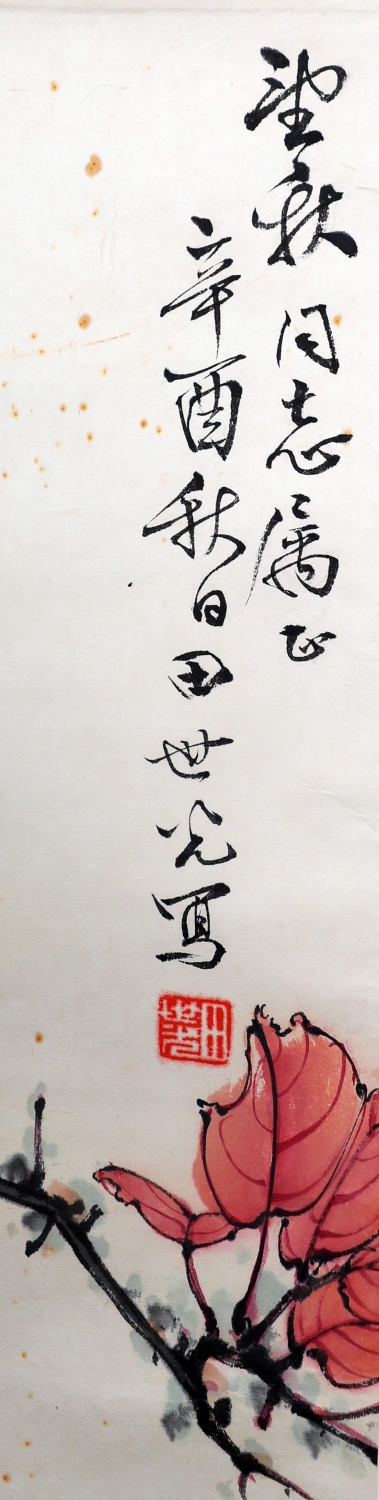 望秋同志属正
辛酉秋日田世光写
田世光